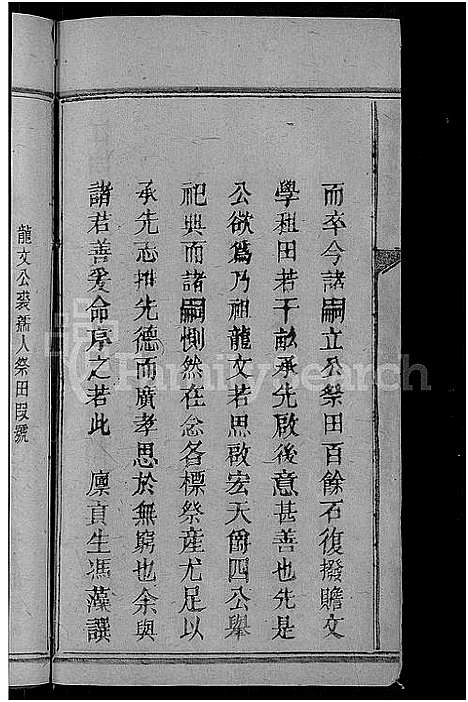 而卒今諸嗣立公祭田百餘石復撥贍文
學租田若干畝承先啟後意甚善也先是
公欲爲乃祖龍文若思啟宏天爵四公舉
祀典而諸嗣惻然在念各標祭產尤足以
承先志推先德而廣孝思於無窮也余與
諸君善爰命序之若此　廩貢生馮藻譔
龍文公裴孺人祭田段號
FamilySearch